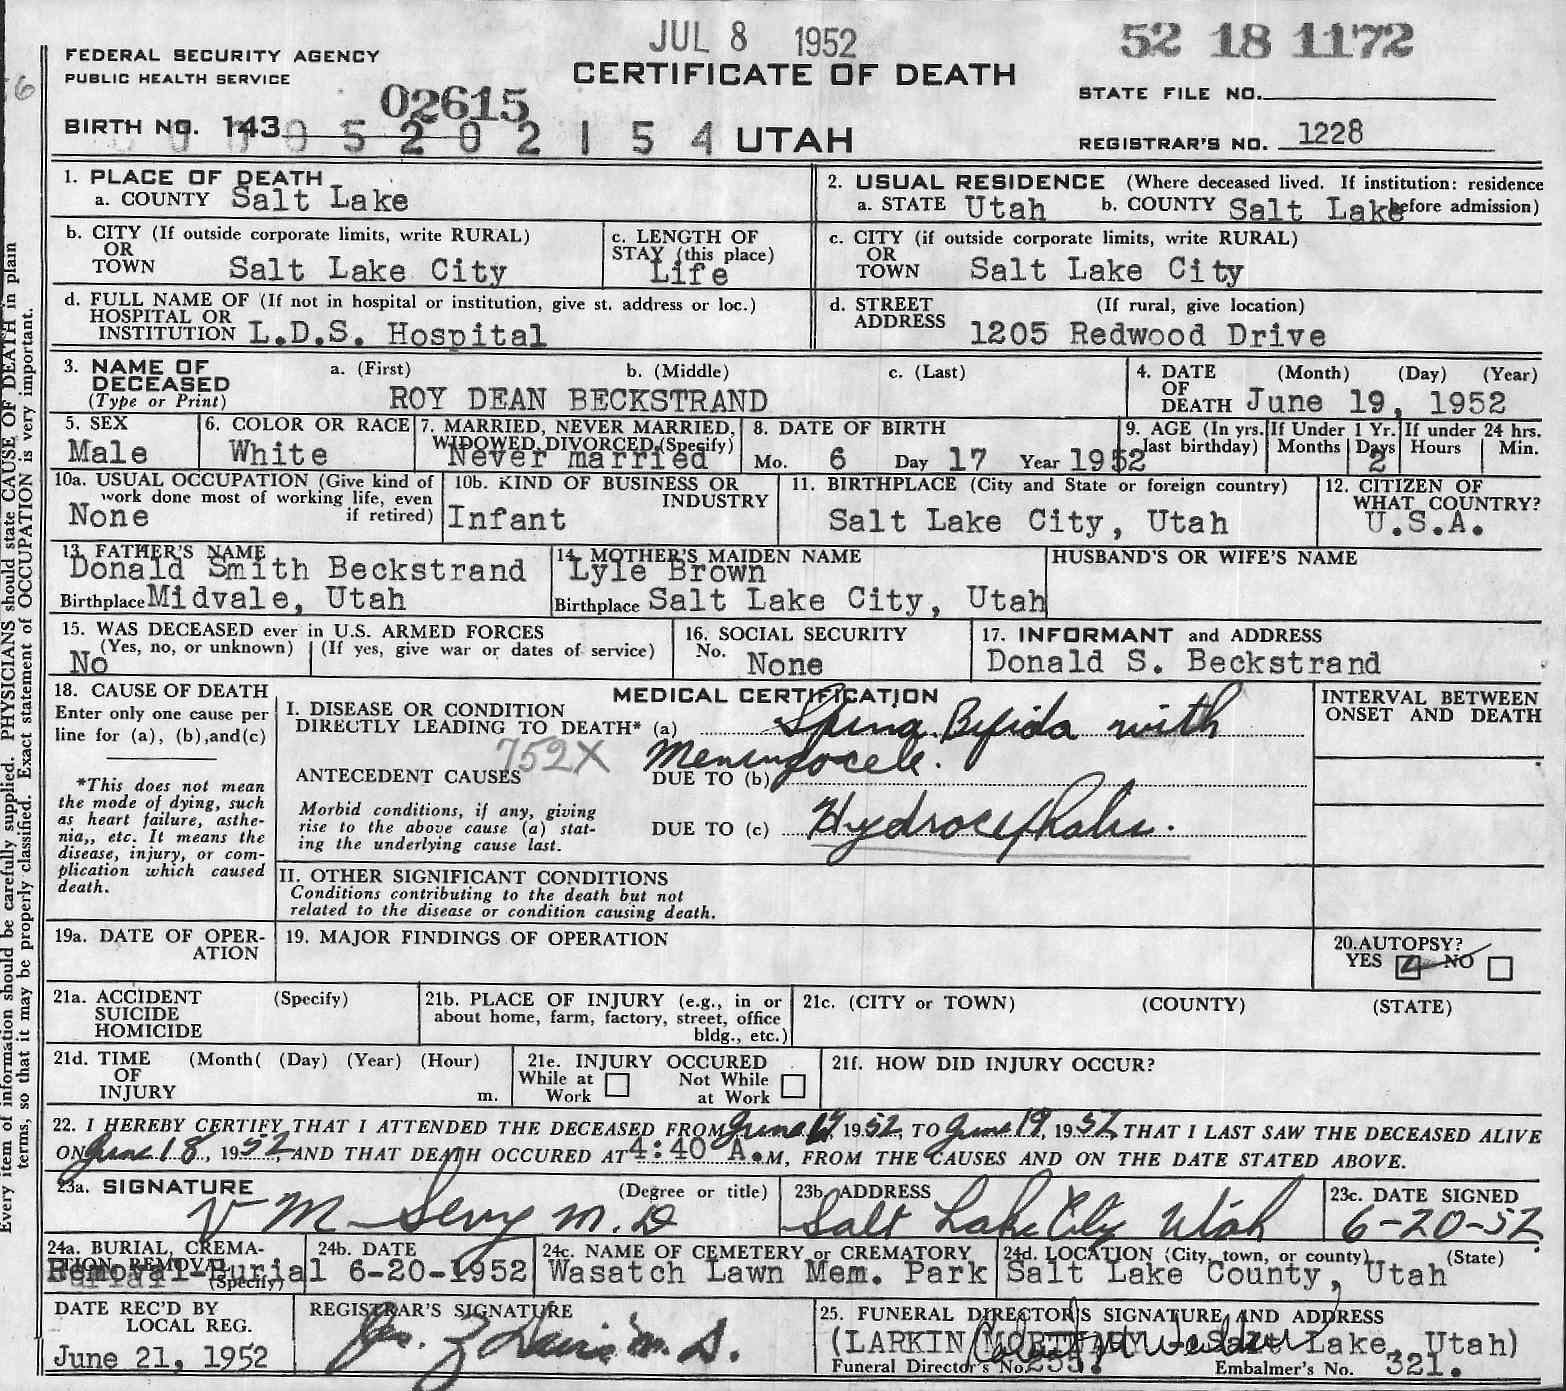 JUL 8 1952
52 18 1172
FEDERAL SECURITY AGENCY
PUBLIC HEALTH SERVICE
CERTIFICATE OF DEATH
STATE FILE NO.
02615
BIRTH NO. 143
5 2 0 2 1 5 4
UTAH
REGISTRAR'S NO. 1228
1. PLACE OF DEATH
a. COUNTY Salt Lake
2. USUAL RESIDENCE (Where deceased lived. If institution: residence before admission)
a. STATE Utah b. COUNTY Salt Lake
b. CITY (If outside corporate limits, write RURAL)
OR
TOWN Salt Lake City
c. LENGTH OF
STAY (this place)
Life
c. CITY (if outside corporate limits, write RURAL)
OR
TOWN Salt Lake City
d. FULL NAME OF (If not in hospital or institution, give st. address or loc.)
HOSPITAL OR
INSTITUTION L.D.S. Hospital
d. STREET (If rural, give location)
ADDRESS 1205 Redwood Drive
3. NAME OF
DECEASED
(Type or Print)
a. (First) b. (Middle) c. (Last)
ROY DEAN BECKSTRAND
4. DATE (Month) (Day) (Year)
OF
DEATH June 19, 1952
5. SEX
Male
6. COLOR OR RACE
White
7. MARRIED, NEVER MARRIED,
WIDOWED, DIVORCED (Specify)
Never married
8. DATE OF BIRTH
Mo. 6 Day 17 Year 1952
9. AGE (In yrs. last birthday)
If Under 1 Yr. Months Days 2
If under 24 hrs. Hours Min.
10a. USUAL OCCUPATION (Give kind of
work done most of working life, even
if retired)
None
10b. KIND OF BUSINESS OR
INDUSTRY
Infant
11. BIRTHPLACE (City and State or foreign country)
Salt Lake City, Utah
12. CITIZEN OF
WHAT COUNTRY?
U.S.A.
13. FATHER'S NAME
Donald Smith Beckstrand
Birthplace Midvale, Utah
14. MOTHER'S MAIDEN NAME
Lyle Brown
Birthplace Salt Lake City, Utah
HUSBAND'S OR WIFE'S NAME
15. WAS DECEASED ever in U.S. ARMED FORCES
(Yes, no, or unknown) (If yes, give war or dates of service)
No
16. SOCIAL SECURITY
No. None
17. INFORMANT and ADDRESS
Donald S. Beckstrand
18. CAUSE OF DEATH
Enter only one cause per
line for (a), (b), and (c)
*This does not mean
the mode of dying, such
as heart failure, asthe-
nia,, etc. It means the
disease, injury, or com-
plication which caused
death.
MEDICAL CERTIFICATION
I. DISEASE OR CONDITION
DIRECTLY LEADING TO DEATH* (a) Spina Bifida with
752X Meningocele.
ANTECEDENT CAUSES DUE TO (b)
Morbid conditions, if any, giving
rise to the above cause (a) stat-
ing the underlying cause last.
DUE TO (c) Hydrocephalus.
INTERVAL BETWEEN
ONSET AND DEATH
II. OTHER SIGNIFICANT CONDITIONS
Conditions contributing to the death but not
related to the disease or condition causing death.
19a. DATE OF OPER-
ATION
19. MAJOR FINDINGS OF OPERATION
20. AUTOPSY?
YES NO
21a. ACCIDENT (Specify)
SUICIDE
HOMICIDE
21b. PLACE OF INJURY (e.g., in or
about home, farm, factory, street, office
bldg., etc.)
21c. (CITY or TOWN) (COUNTY) (STATE)
21d. TIME (Month( (Day) (Year) (Hour)
OF
INJURY m.
21e. INJURY OCCURED
While at Work Not While at Work
21f. HOW DID INJURY OCCUR?
22. I HEREBY CERTIFY THAT I ATTENDED THE DECEASED FROM June 1952, TO June 19, 1952 THAT I LAST SAW THE DECEASED ALIVE
ON June 18, 1952, AND THAT DEATH OCCURED AT 4:40 A.M, FROM THE CAUSES AND ON THE DATE STATED ABOVE.
23a. SIGNATURE (Degree or title)
V M Sevy M.D
23b. ADDRESS
Salt Lake City Utah
23c. DATE SIGNED
6-20-52
24a. BURIAL, CREMA-
TION, REMOVAL (Specify)
Removal-Burial
24b. DATE
6-20-1952
24c. NAME OF CEMETERY or CREMATORY
Wasatch Lawn Mem. Park
24d. LOCATION (City, town, or county) (State)
Salt Lake County, Utah
DATE REC'D BY
LOCAL REG.
June 21, 1952
REGISTRAR'S SIGNATURE
M.D.
25. FUNERAL DIRECTOR'S SIGNATURE AND ADDRESS
(LARKIN MORTUARY - Salt Lake, Utah)
Funeral Director's No. 255. Embalmer's No. 321.
Every item of information should be carefully supplied. PHYSICIANS should state CAUSE OF DEATH in plain
terms, so that it may be properly classified. Exact statement of OCCUPATION is very important.